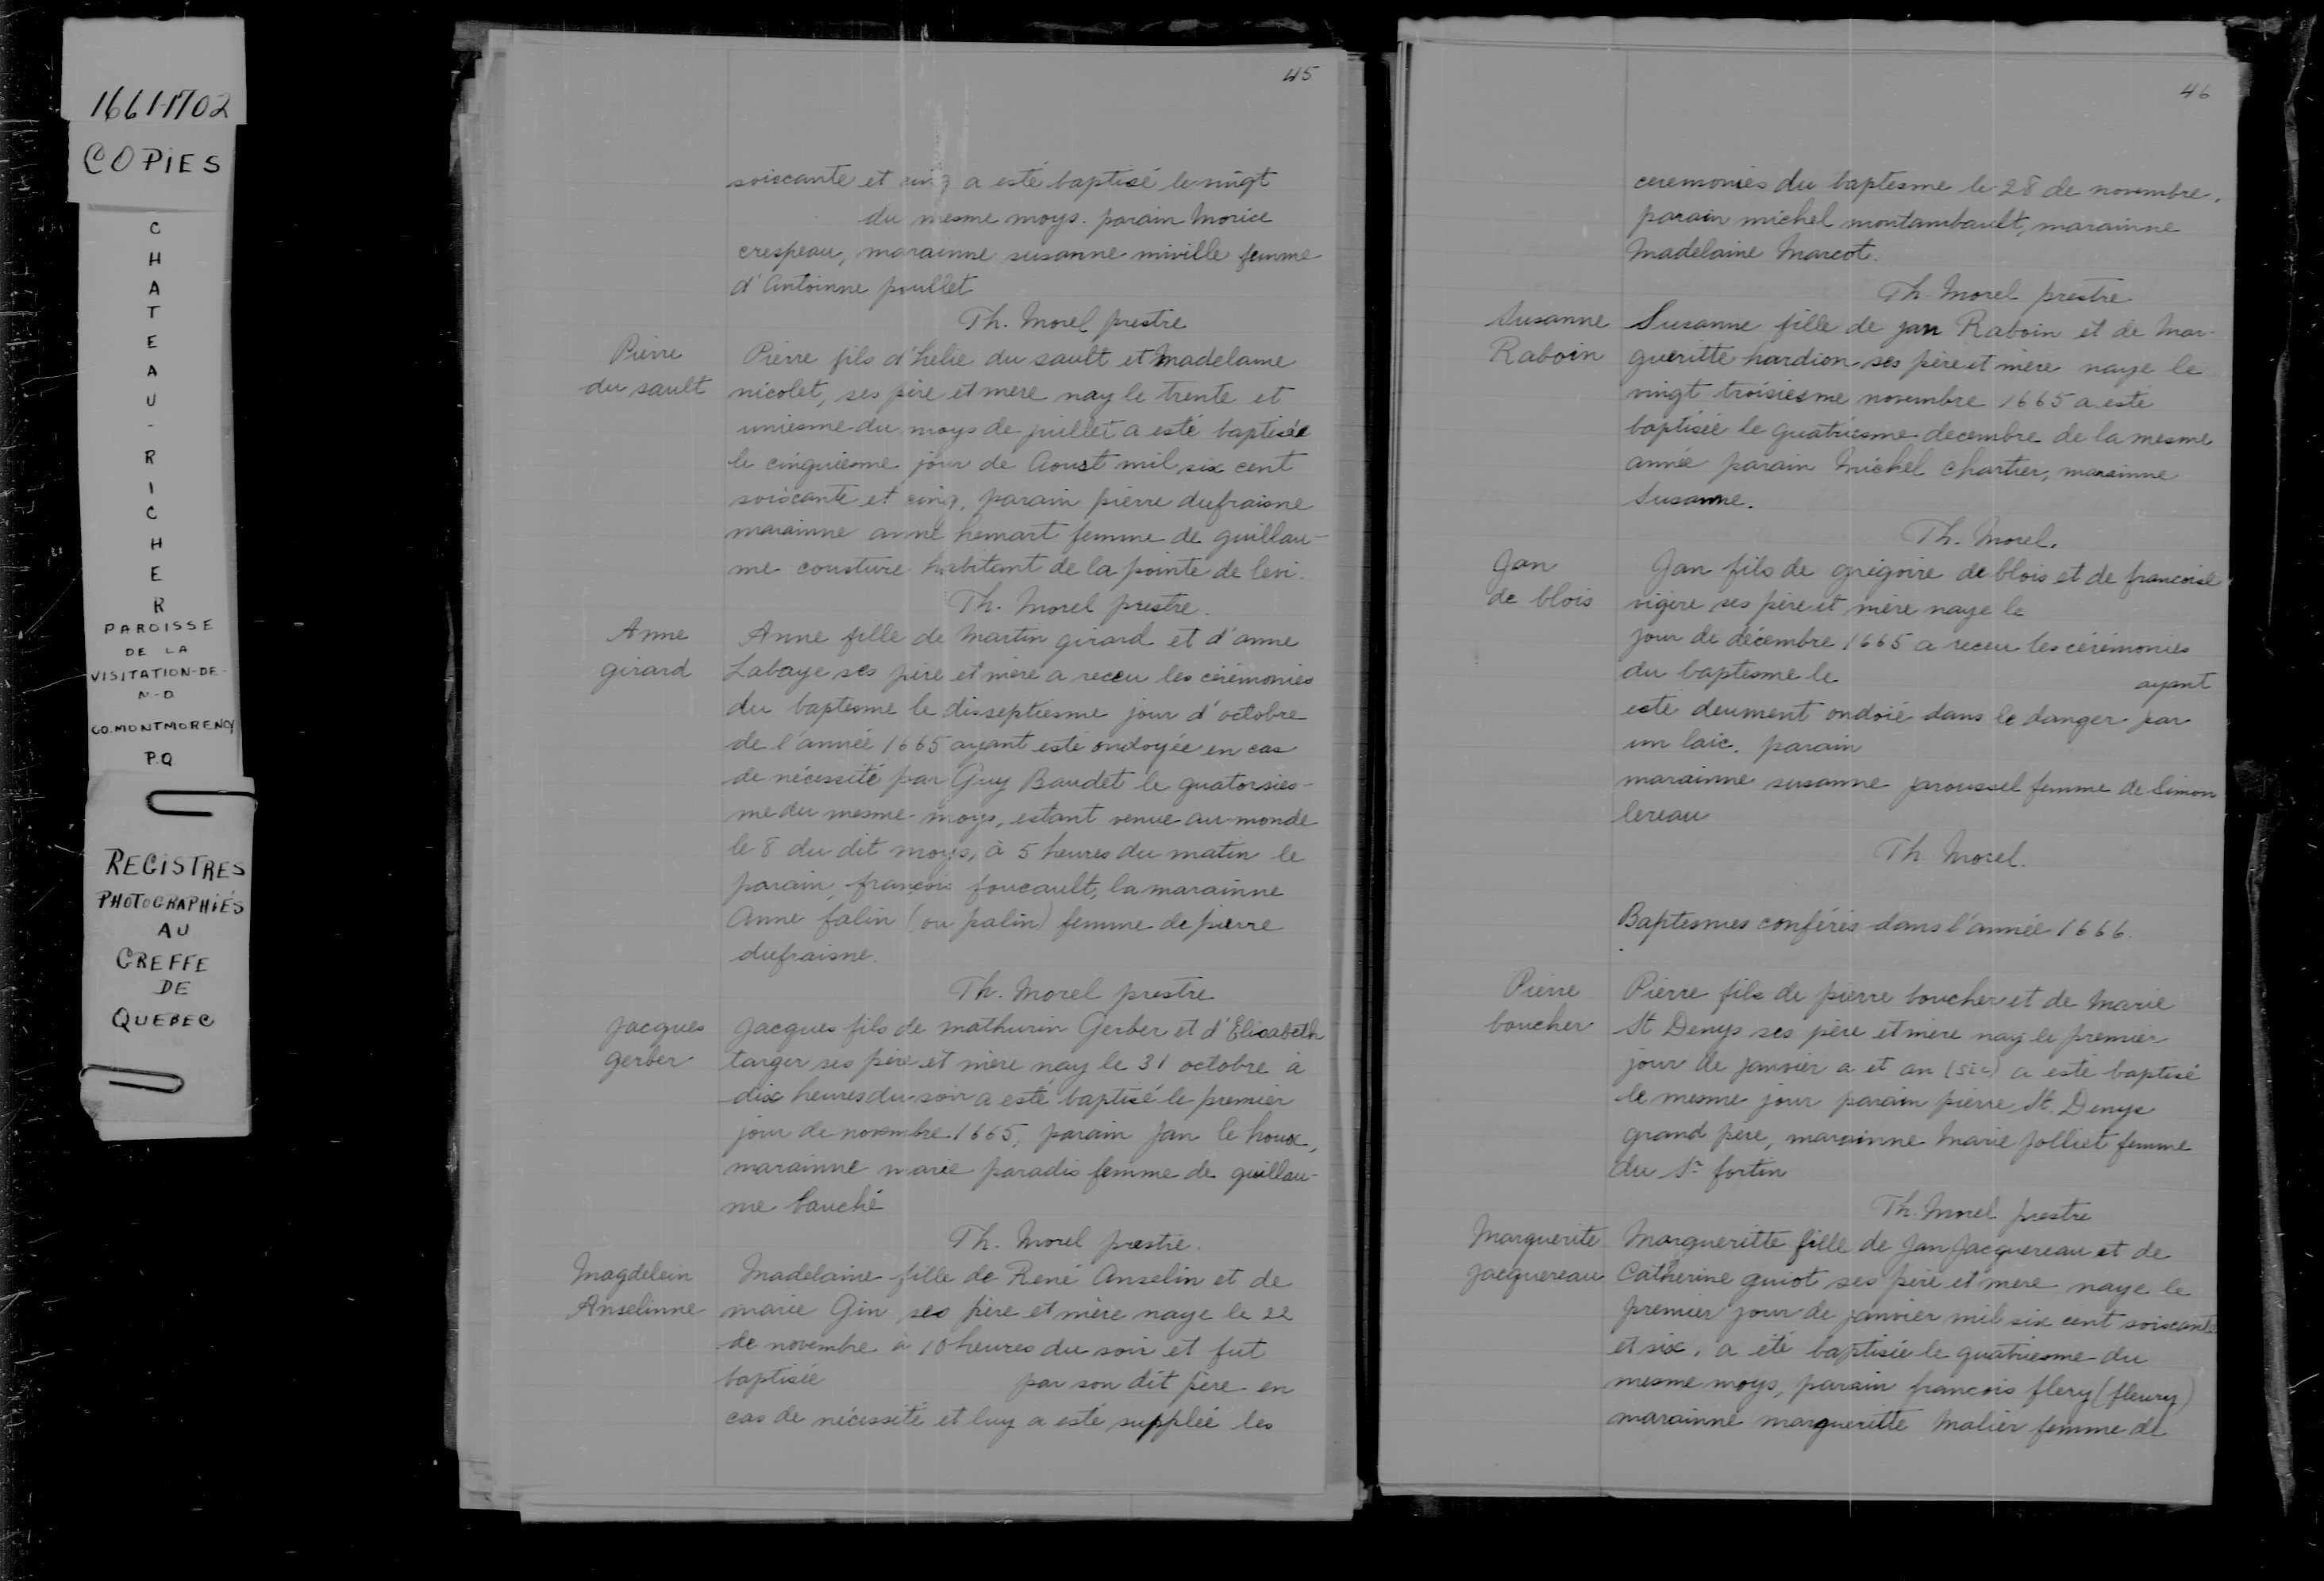 1661-1702
COPIES
CHATEAU-RICHER
PAROISSE
DE LA
VISITATION-DE-
N-D
CO. MONTMORENCY
P.Q
REGISTRES
PHOTOGRAPHIÉS
AU
GREFFE
DE
QUEBEC
45
soiscante et cinq a esté baptisé le vingt
du mesme moys. parain Morice
crespeau, marainne susanne miville femme
d'Antoinne poullet
Th. Morel prestre
Pierre
du sault
Pierre fils d'helie du sault et Madelaine
nicolet, ses père et mere nay le trente et
uniesme du moys de juillet a esté baptisée
le cinquiesme jour de Aoust mil six cent
soiscante et cinq, parain pierre dufraisne
marainne anne hemart femme de guillau-
me cousture habitant de la pointe de levi.
Th. Morel prestre.
Anne
girard
Anne fille de Martin girard et d'anne
Labaye ses père et mère a receu les cérémonies
du baptesme le disseptiesme jour d'octobre
de l'année 1665 ayant esté ondoyée en cas
de nécessité par Guy Baudet le quatorsies-
me du mesme moys, estant venue au monde
le 8 du dit moys, à 5 heures du matin le
parain, françois foucault, la marainne
Anne falin (ou palin) femme de pierre
dufraisne.
Th. Morel prestre
Jacques
gerber
Jacques fils de mathurin Gerber et d'Elisabeth
targer ses père et mère nay le 31 octobre à
dix heures du soir a esté baptisé le premier
jour de novembre 1665, parain Jan le houx,
marainne marie paradis femme de guillau-
me bauché
Th. Morel prestre.
Magdelein
Anselinne
Madelaine fille de René Anselin et de
marie Gin ses père et mère naye le 22
de novembre à 10 heures du soir et fut
baptisée par son dit père en
cas de nécessité et luy a esté supplée les
46
ceremonies du baptesme le 28 de novembre.
parain michel montambault, marainne
Madelaine Marcot.
Th. Morel prestre
Susanne
Raboin
Susanne fille de jan Raboin et de Mar-
gueritte hardion ses père et mère naye le
vingt troisiesme novembre 1665 a esté
baptisée le quatriesme decembre de la mesme
année parain Michel Chartier, marainne
Susanne.
Th. Morel.
Jan
de blois
Jan fils de grégoire de blois et de francoise
vigère ses père et mère naye le
jour de décembre 1665 a receu les cérémonies
du baptesme le ayant
esté deument ondoié dans le danger par
un laic. parain
marainne susanne jaroussel femme de Simon
lereau
Th Morel.
Baptesmes conférés dans l'année 1666.
Pierre
boucher
Pierre fils de pierre boucher et de Marie
St Denys ses père et mère nay le premier
jour de janvier a et an (sic) a esté baptisé
le mesme jour parain pierre St. Denys
grand père, marainne Marie Jolliet femme
du Sr fortin
Th. Morel prestre
Marguerite
Jacquereau
Margueritte fille de Jan Jacquereau et de
Catherine guiot ses père et mere naye le
premier jour de janvier mil six cent soiscante
et six, a été baptisée le quatriesme du
mesme moys, parain francois flery (fleury)
marainne margueritte Malier femme de